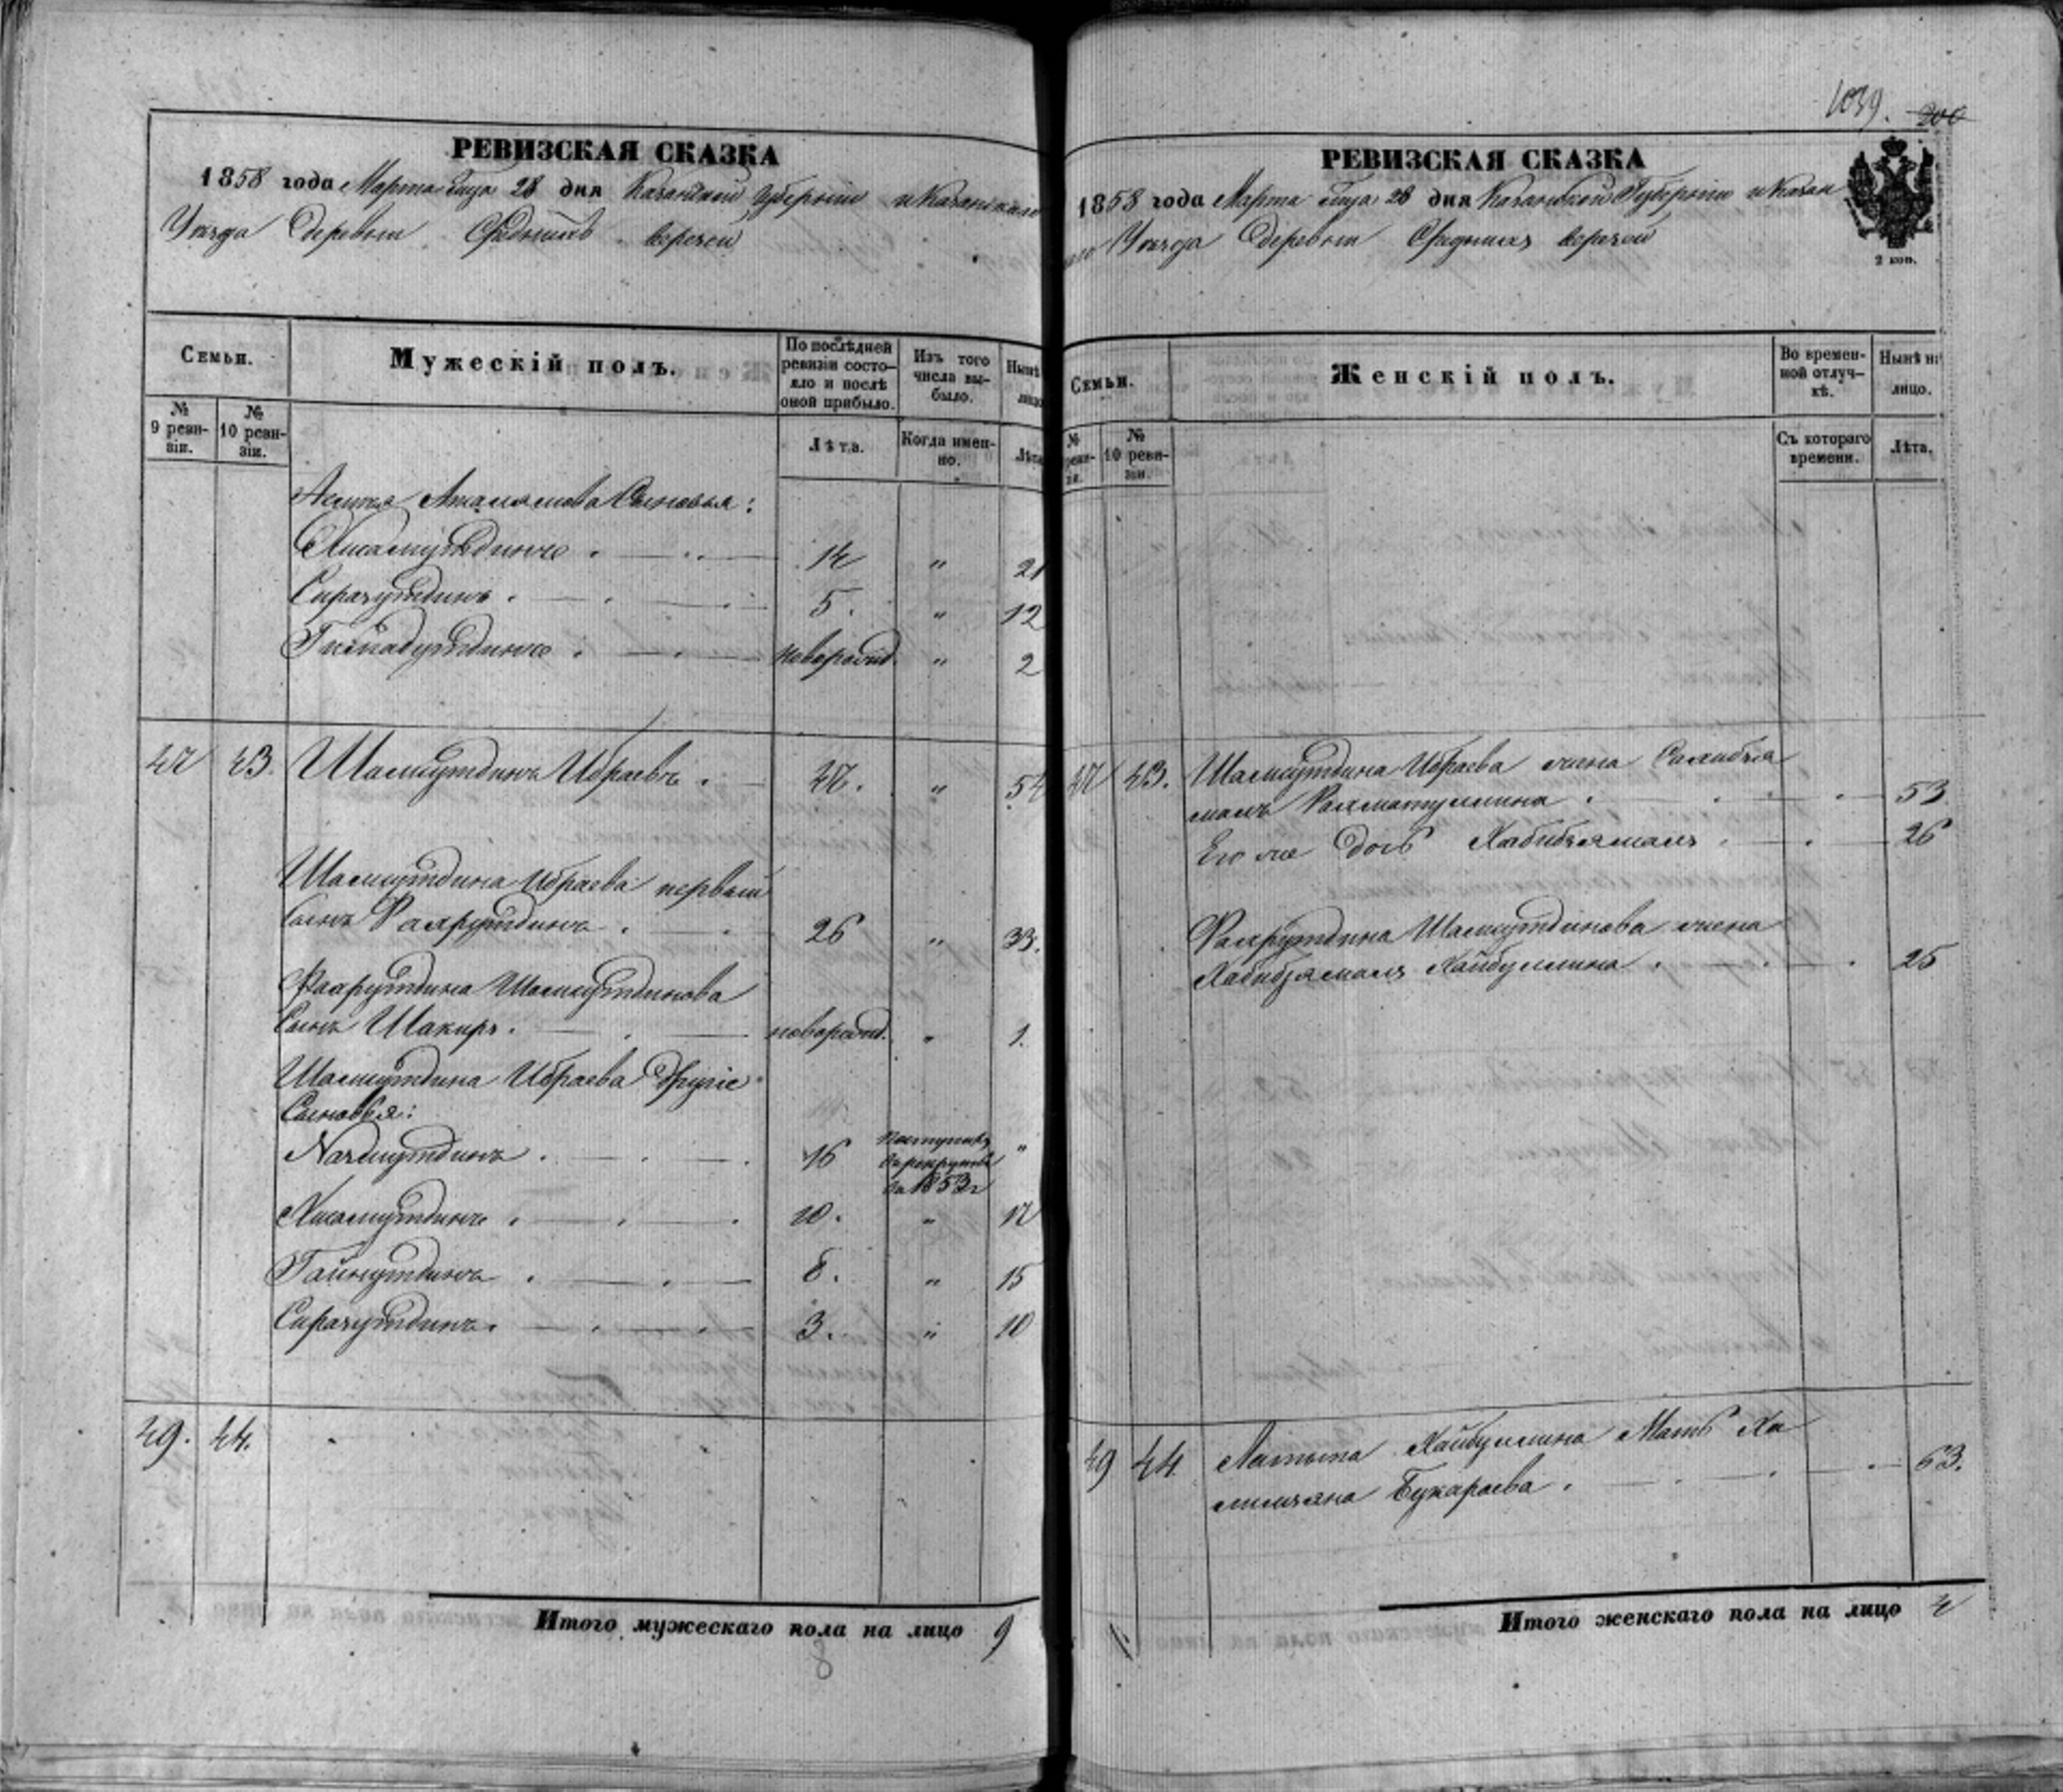 РЕВИЗСКАЯ СКАЗКА
1858 года Марта м-ца 28 дня Казанской Губернии и Казанскаго
Уезда Деревни Средних верезей
Семьи.
Мужескій полъ.
По послѣдней ревизіи состояло и послѣ оной прибыло.
Изъ того числа выбыло.
Нынѣ лицо
№ 9 ревизіи.
№ 10 ревизіи.
Лѣта.
Когда именно.
Лѣта
Сыновья:
14 " 21
Сиразутдинъ 5. " 12
новорожд. " 2
47 43. Шамсутдинъ Ибраевъ 47. " 54
Шамсутдина Ибраева первый
Сынъ Фахрутдинъ 26 " 33.
Фахрутдина Шамсутдинова
Сынъ Шакиръ новорожд. " 1.
Шамсутдина Ибраева другіе
Сыновья:
Назмутдинъ 16 поступилъ в рекруты в 1853 г "
Хисамутдинъ 10. " 17
Гайнутдинъ 8. " 15
Сиразутдинъ 3. " 10
49. 44.
Итого мужескаго пола на лицо 9
8
1039. 200
РЕВИЗСКАЯ СКАЗКА
1858 года Марта м-ца 28 дня Казанской Губернии и Казан
Уезда Деревни Средних верезей
2 коп.
Семьи.
Женскій полъ.
Во временной отлучкѣ.
Нынѣ на лицо.
№ 10 ревизіи.
Съ котораго времени.
Лѣта.
47 43. Шамсутдина Ибраева жена
малъ Рахматуллина 53
Его же дочь Хабибзямалъ 26
Фахрутдина Шамсутдинова жена
Хабибзямалъ Хайбуллина 25
49 44 Хайбуллина Мать Ха
Букараева 63.
Итого женскаго пола на лицо 4